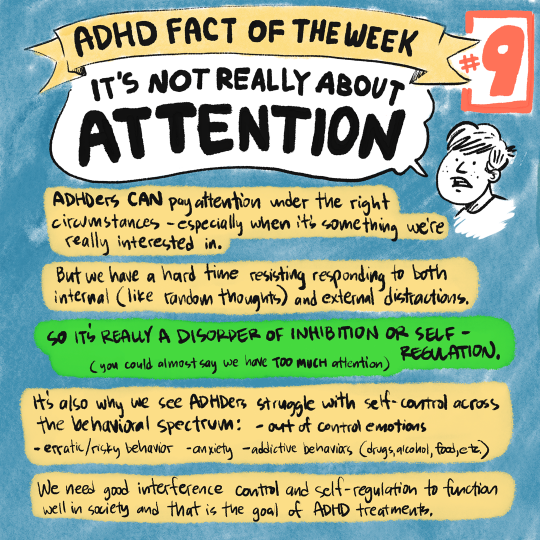 ADHD FACT OF THE WEEK
#9
IT'S NOT REALLY ABOUT
ATTENTION
ADHDers CAN pay attention under the right
circumstances - especially when it's something we're
really interested in.
But we have a hard time resisting responding to both
internal (like random thoughts) and external distractions.
SO IT'S REALLY A DISORDER OF INHIBITION OR SELF-
REGULATION.
(you could almost say we have TOO MUCH attention)
It's also why we see ADHDers struggle with self-control across
the behavioral spectrum: - out of control emotions
- erratic/risky behavior - anxiety - addictive behaviors (drugs, alcohol, food, etc.)
We need good interference control and self-regulation to function
well in society and that is the goal of ADHD treatments.